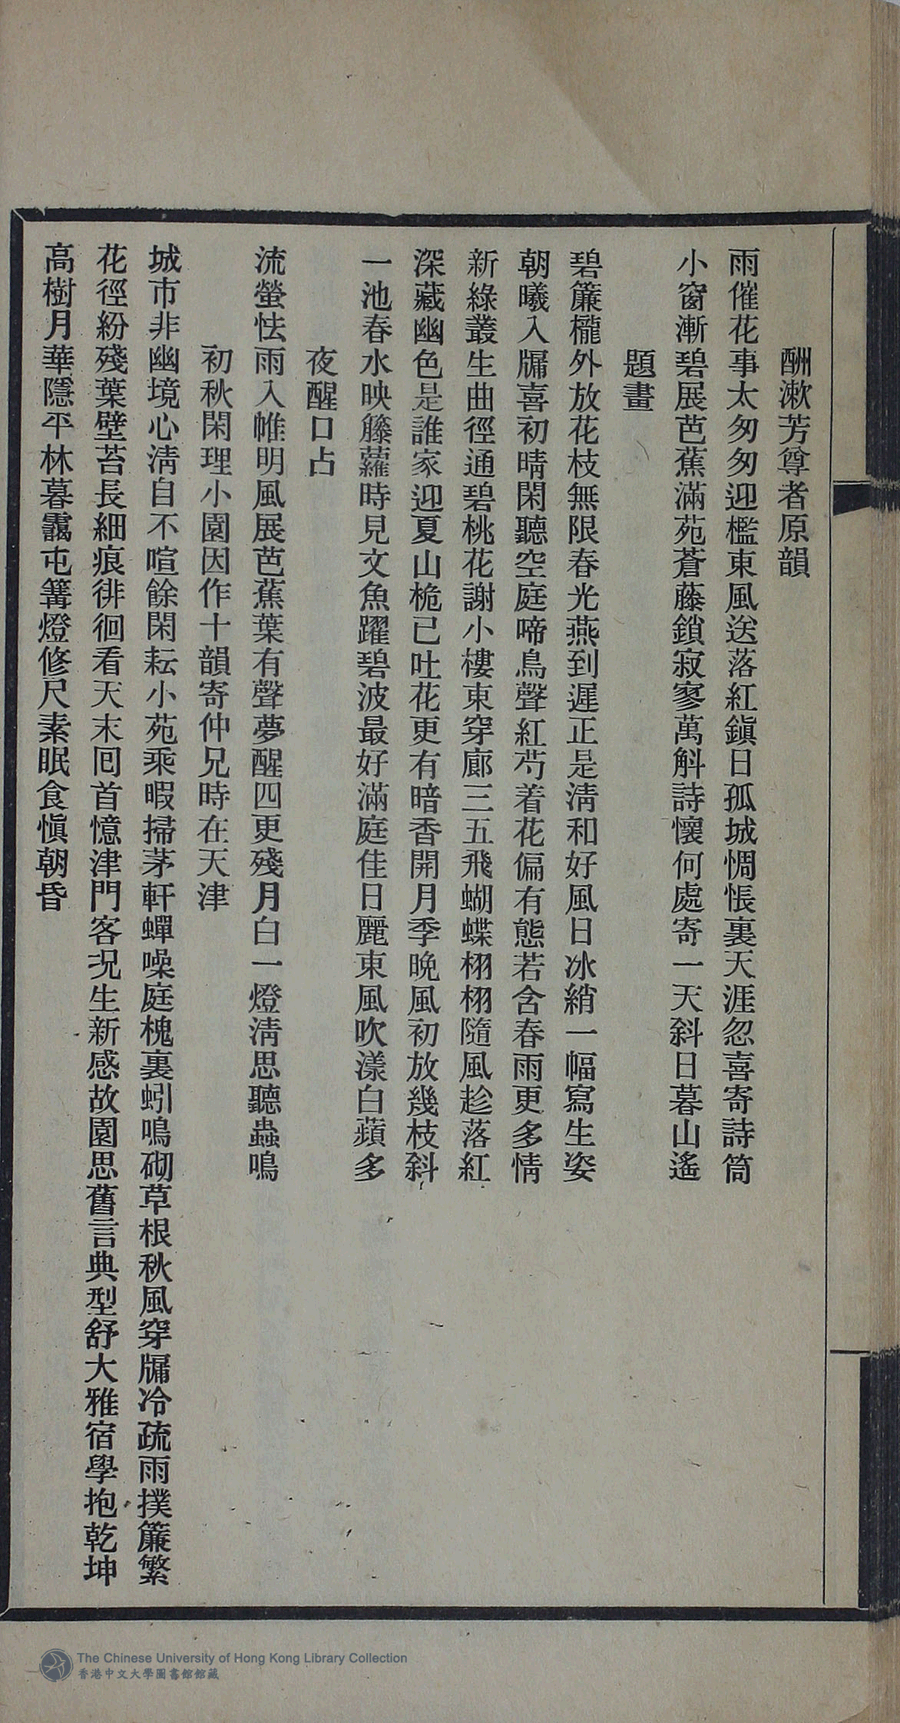 酬漱芳尊者原韻
雨催花事太匆匆迎檻東風送落紅鎭日孤城惆悵裏天涯忽喜寄詩筒
小窗漸碧展芭蕉滿苑蒼藤鎖寂寥萬斛詩懷何處寄一天斜日暮山遙
題畫
碧簾櫳外放花枝無限春光燕到遲正是淸和好風日冰綃一幅寫生姿
朝曦入牖喜初晴閑聽空庭啼鳥聲紅芍着花偏有態若含春雨更多情
新綠叢生曲徑通碧桃花謝小樓東穿廊三五飛蝴蝶栩栩隨風趁落紅
深藏幽色是誰家迎夏山桅已吐花更有暗香開月季晚風初放幾枝斜
一池春水映籐蘿時見文魚躍碧波最好滿庭佳日麗東風吹漾白蘋多
夜醒口占
流螢怯雨入帷明風展芭蕉葉有聲夢醒四更殘月白一燈淸思聽蟲鳴
初秋閑理小園因作十韻寄仲兄時在天津
城市非幽境心淸自不喧餘閑耘小苑乘暇掃茅軒蟬噪庭槐裏蚓鳴砌草根秋風穿牖冷疏雨撲簾繁
花徑紛殘葉壁苔長細痕徘徊看天末囘首憶津門客況生新感故園思舊言典型舒大雅宿學抱乾坤
高樹月華隱平林暮靄屯篝燈修尺素眠食愼朝昏
The Chinese University of Hong Kong Library Collection
香港中文大學圖書館館藏